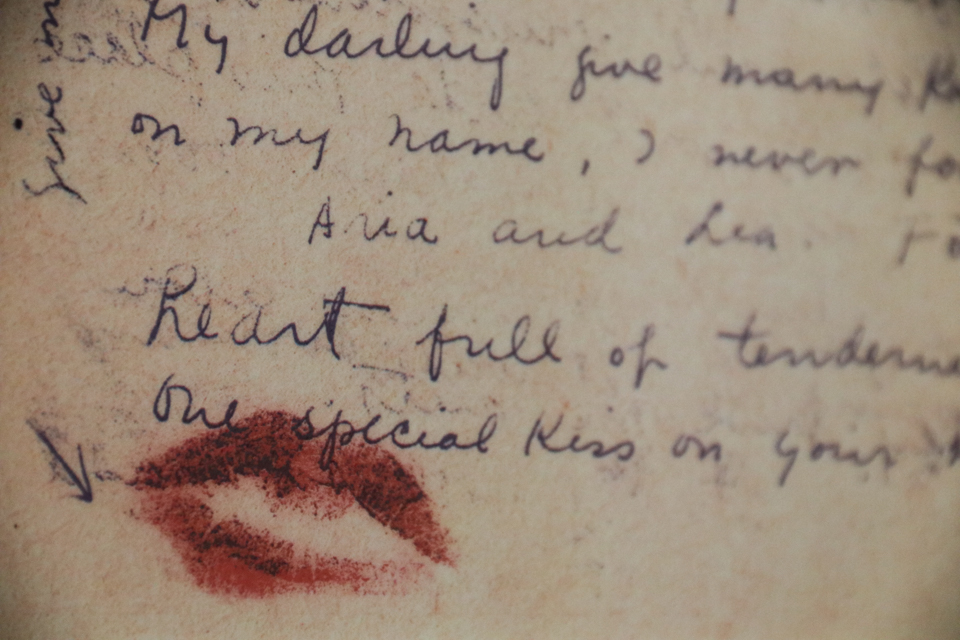 give
My darling give many
on my name, I never
Aria and Lea.
heart full of
One special Kiss on your